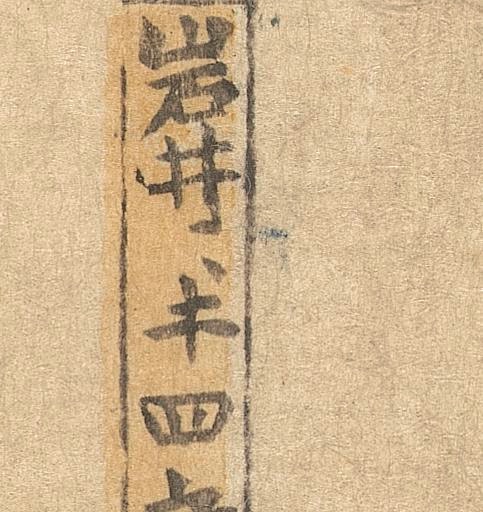 岩井半四